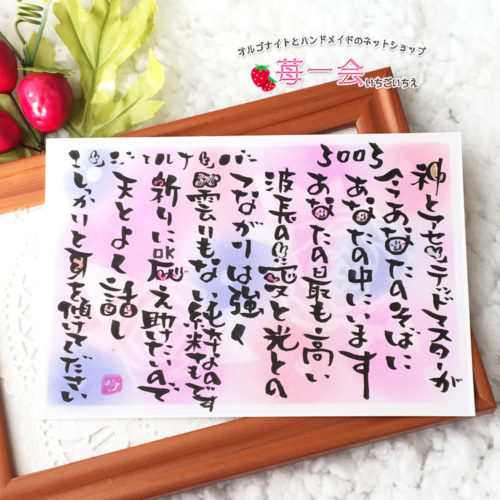 オルゴナイトとハンドメイドのネットショップ
苺一会
いちごいちえ
3003
神とアセンテッドマスターが
今あなたのそばに
あなたの中にいます
あなたの最も高い
波長の愛と光との
つながりは強く
曇りもない純粋なものです
祈りに応え助けたいので
天とよく話し
しっかりと耳を傾けてください